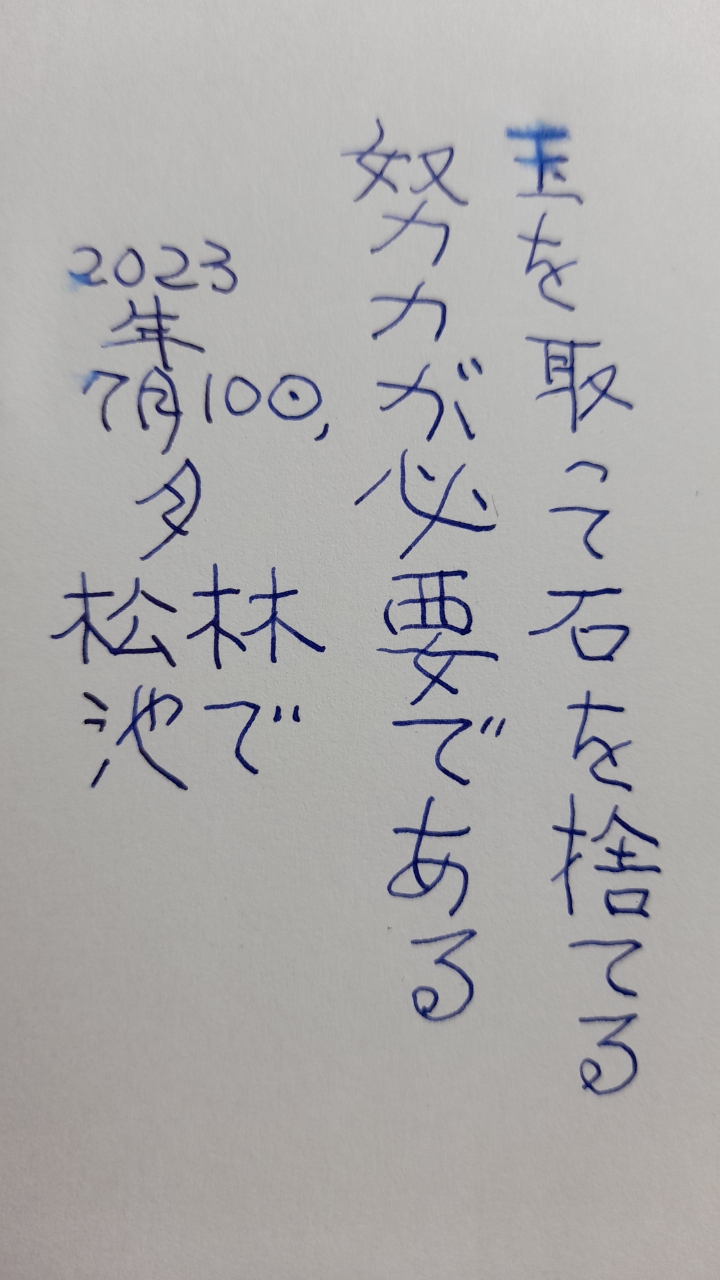 玉を取って石を捨てる
努力が必要である
2023
年
7月10日,
夕
松林
池で